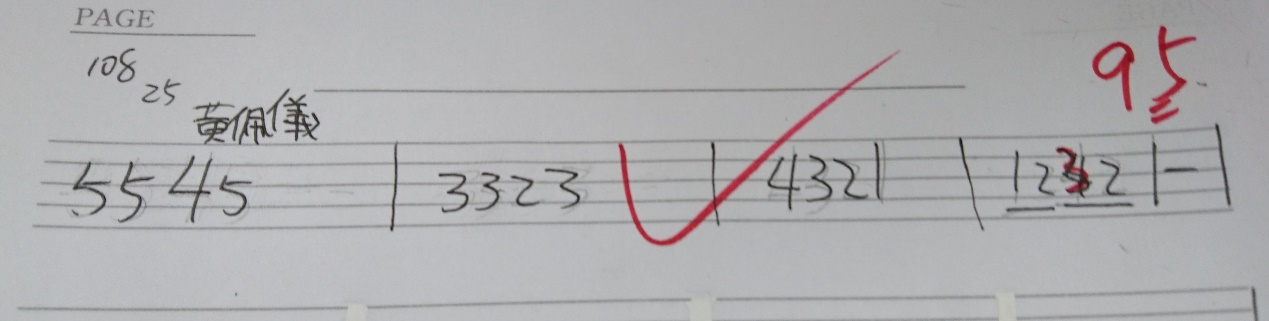 PAGE
108
25
95
黃佩儀
5545 | 3323 | 4321 | 1232 1 - |